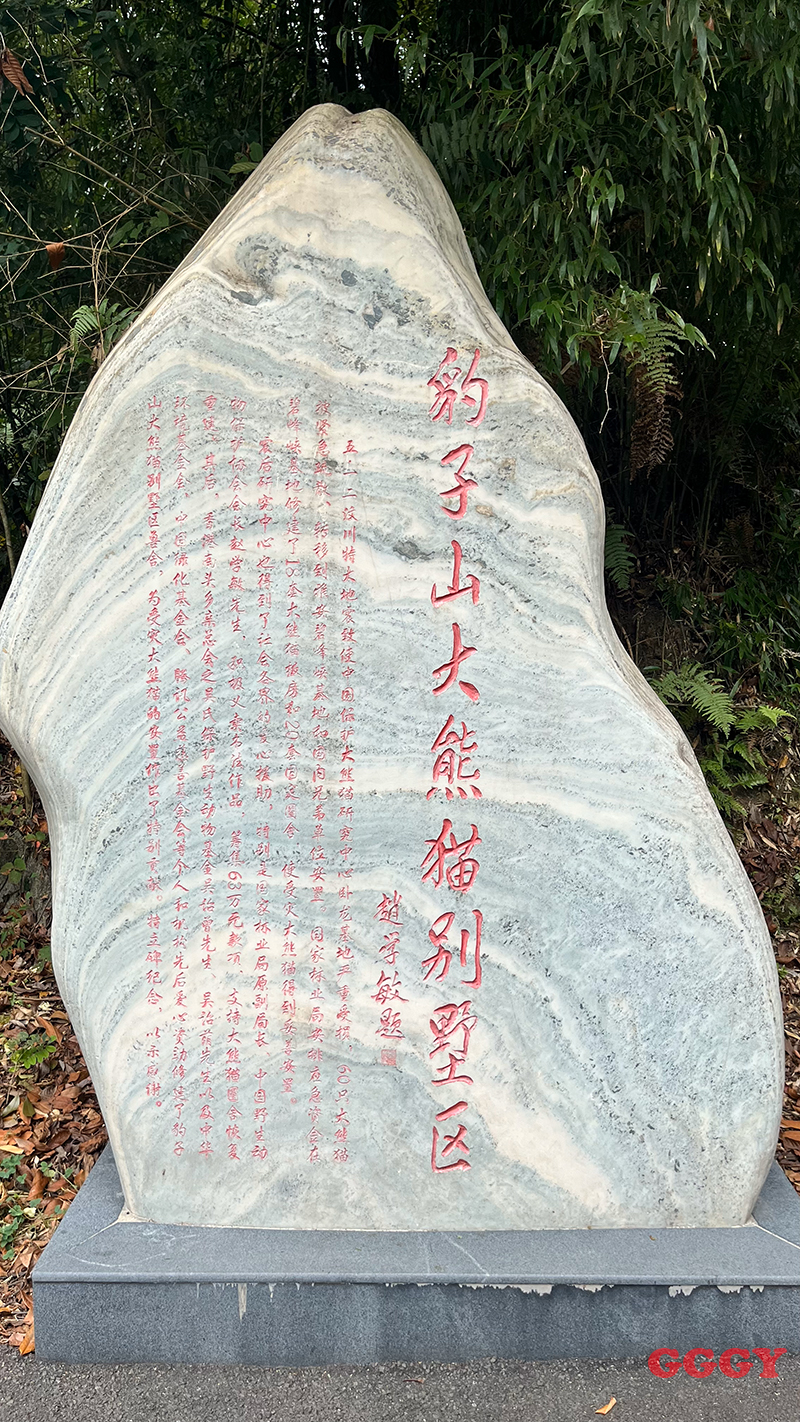 豹子山大熊猫别墅区
趙学敏题
五一二汶川特大地震致使中国保护大熊猫研究中心卧龙基地严重受损，60只大熊猫
被紧急疏散、转移到雅安碧峰峡基地和国内兄弟单位安置。国家林业局安排应急资金在
碧峰峡基地修建了15套大熊猫板房和20套固定兽舍，使受灾大熊猫得到妥善安置。
震后研究中心也得到了社会各界的爱心援助，特别是国家林业局原副局长、中国野生动
物保护协会会长赵学敏先生，积极义卖名应作品，筹集63万元款项，支持大熊猫圈舍恢复
重建。其后，香港南头乡亲总会之吴氏保护野生动物基金吴治曾先生、吴治 先生以及中华
环境基金会、中国绿化基金会、腾讯公益慈善基金会等个人和机构先后爱心资助修建了豹子
山大熊猫别墅区兽舍，为受灾大熊猫的安置作出了特别贡献。特立碑纪念，以示感谢。
GGGY